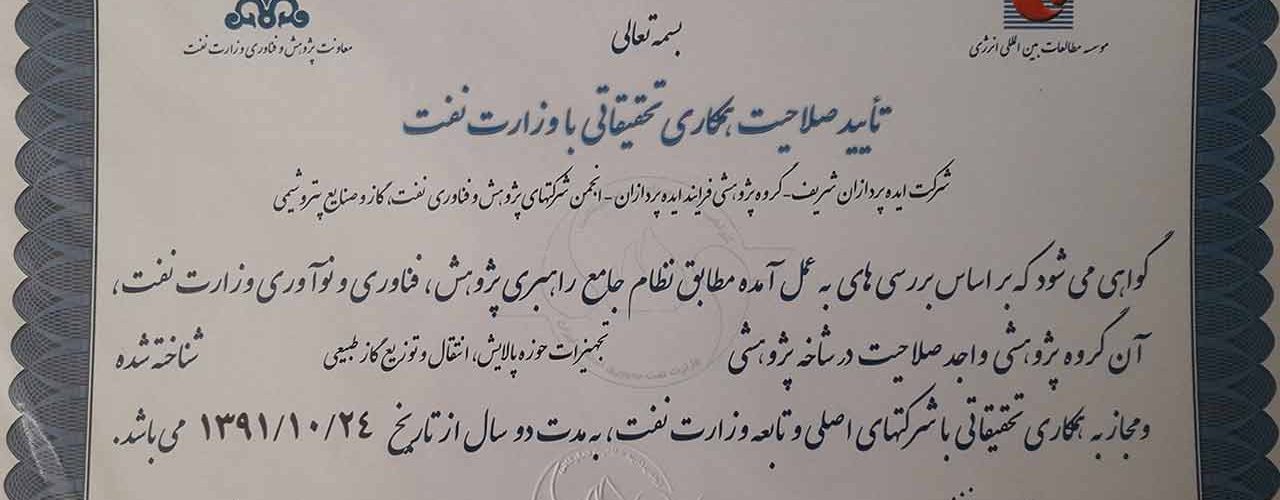 بسمه تعالی
موسسه مطالعات بین المللی انرژی
معاونت پژوهش و فناوری وزارت نفت
تأیید صلاحیت همکاری تحقیقاتی با وزارت نفت
شرکت ایده پردازان شریف - گروه پژوهشی فرایند ایده پردازان - انجمن شرکتهای پژوهش و فناوری نفت، گاز و صنایع پتروشیمی
گواهی می شود که بر اساس بررسی های به عمل آمده مطابق نظام جامع راهبری پژوهش، فناوری و نوآوری وزارت نفت،
آن گروه پژوهشی واجد صلاحیت در شاخه پژوهشی تجهیزات حوزه پالایش، انتقال و توزیع گاز طبیعی شناخته شده
و مجاز به همکاری تحقیقاتی با شرکتهای اصلی و تابعه وزارت نفت، به مدت دو سال از تاریخ ۱۳۹۱/۱۰/۲۴ می باشد.